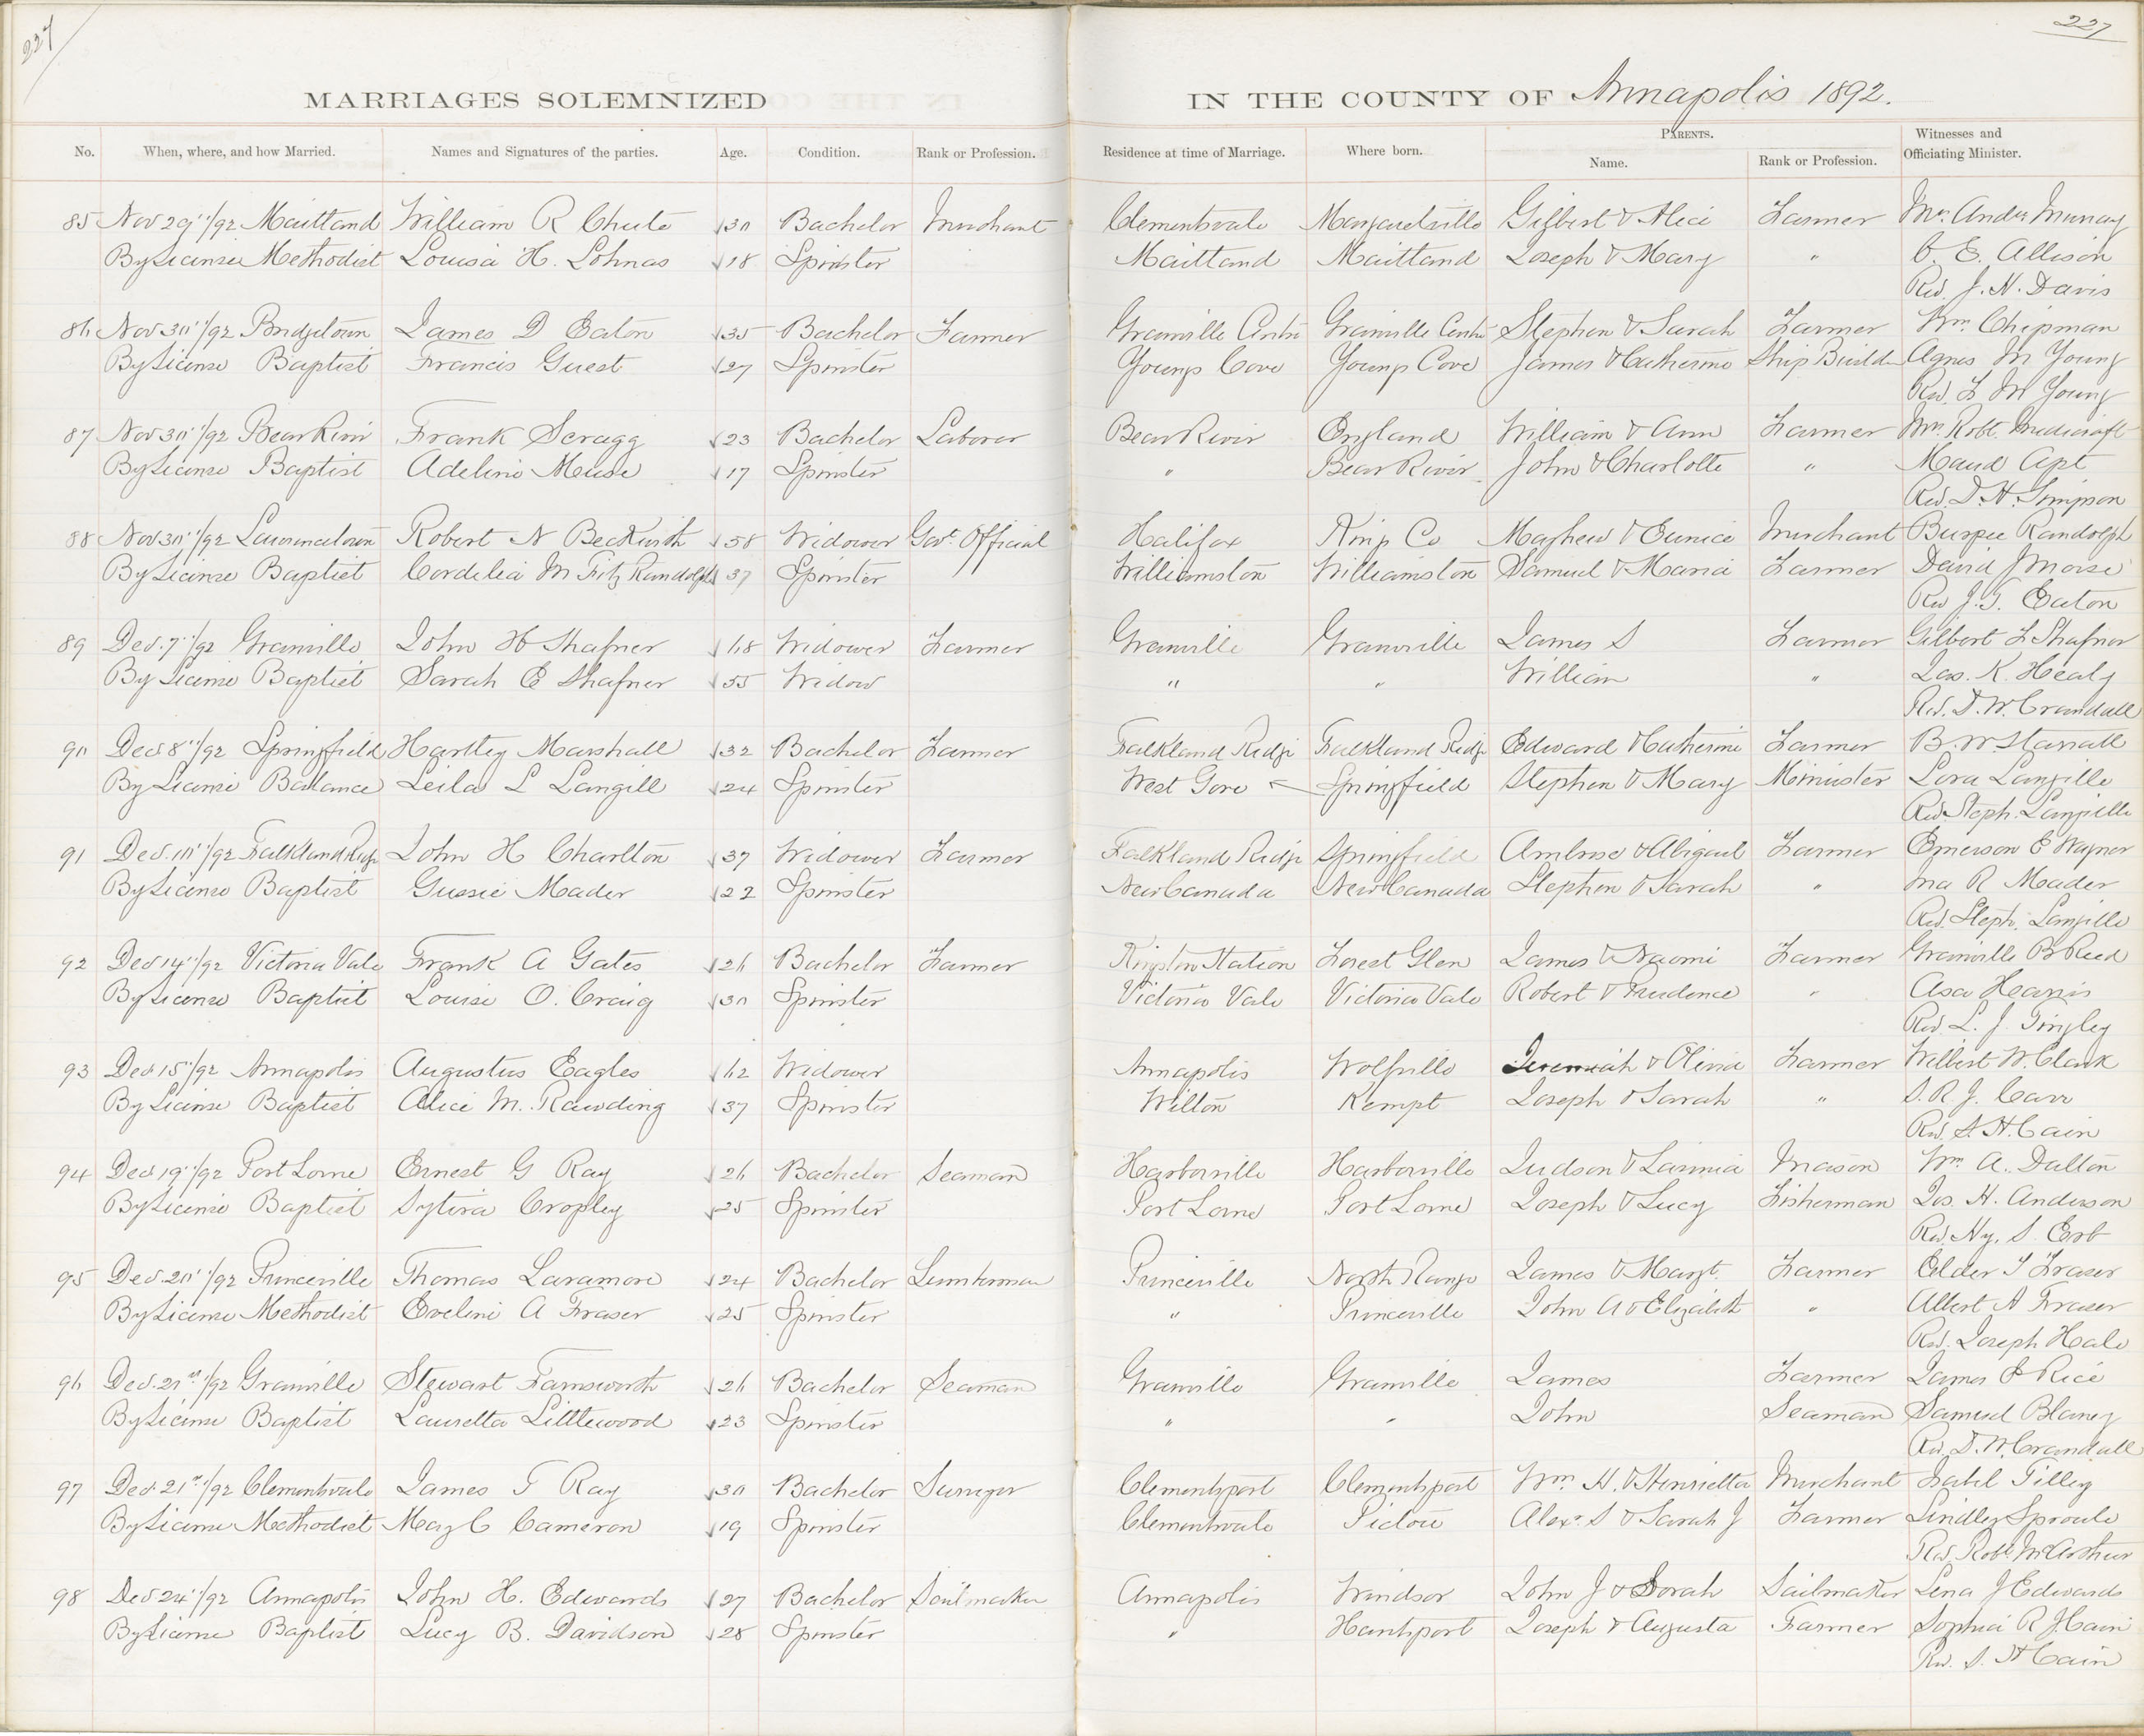 227
227
MARRIAGES SOLEMNIZED IN THE COUNTY OF Annapolis 1892.
No. When, where, and how Married. Names and Signatures of the parties. Age. Condition. Rank or Profession. Residence at time of Marriage. Where born. PARENTS. Name. Rank or Profession. Witnesses and Officiating Minister.
85 Nov 29"/92 Maitland William R Chute 30 Bachelor Merchant Clementsvale Margaretville Gilbert & Alice Farmer Mrs. Andw Murray
By License Methodist Louisa H. Lohnas 18 Spinster Maitland Maitland Joseph & Mary " C. E. Allison
Rev. J. H. Davis
86 Nov 30"/92 Bridgetown James D Eaton 35 Bachelor Farmer Granville Centre Granville Centre Stephen & Sarah Farmer Wm. Chipman
By License Baptist Francis Guest 27 Spinster Youngs Cove Youngs Cove James & Catherine Ship Builder Agnes M Young
Rev. F M Young
87 Nov 30"/92 Bear River Frank Scragg 23 Bachelor Laborer Bear River England William & Ann Farmer Mrs. Robt. Medicraft
By License Baptist Adeline Meuse 17 Spinster " Bear River John & Charlotte " Maud Apt
Rev. D. H. Simpson
88 Nov 30"/92 Lawrencetown Robert N Beckwith 58 Widower Govt. Official Halifax Kings Co Mayhew & Eunice Merchant Burpee Randolph
By License Baptist Cordelia M Fitz Randolph 37 Spinster Williamston Williamston Samuel & Maria Farmer David Morse
Rev J. T. Eaton
89 Dec. 7"/92 Granville John H Shafner 68 Widower Farmer Granville Granville James S Farmer Gilbert F Shafner
By License Baptist Sarah E Shafner 55 Widow " " William " Jas. K. Healy
Rev. D. W. Crandall
90 Dec 8"/92 Springfield Hartley Marshall 32 Bachelor Farmer Falkland Ridge Falkland Ridge Edward & Catherine Farmer B. W Starratt
By License Leila L Langill 24 Spinster West Gore Springfield Stephen & Mary Minister Lora Langille
Rev Steph. Langille
91 Dec. 10"/92 Falkland Ridge John H Charlton 37 Widower Farmer Falkland Ridge Springfield Ambrose & Abigail Farmer Emerson E Wagner
By License Baptist Gussie Mader 22 Spinster New Canada New Canada Stephen & Sarah " Ina R Mader
Rev. Steph. Langille
92 Dec 14"/92 Victoria Vale Frank A Gates 26 Bachelor Farmer Kingston Station Forest Glen James & Naomi Farmer Granville B Reed
By License Baptist Louise O. Craig 30 Spinster Victoria Vale Victoria Vale Robert & Prudence " Asa Harris
Rev. L. J. Tingley
93 Dec 15"/92 Annapolis Augustus Eagles 62 Widower Annapolis Wolfville Jeremiah & Olivia Farmer Wilbert W. Clark
By License Baptist Alice M. Rawding 37 Spinster Wilton Kempt Joseph & Sarah " S. R. J. Carr
Rev. S. H. Cain
94 Dec 19"/92 Port Lorne Ernest G Ray 26 Bachelor Seaman Harborville Harborville Judson & Lavinia Mason Wm A. Dalton
By License Baptist Sytira Cropley 25 Spinster Port Lorne Port Lorne Joseph & Lucy Fisherman Jos. H. Anderson
Rev. Hy. S. Erb
95 Dec. 20"/92 Princeville Thomas Laramore 24 Bachelor Lumberman Princeville North Range James & Margt. Farmer Elder T Fraser
By License Methodist Eveline A Fraser 25 Spinster " Princeville John A & Elizabeth " Albert A Fraser
Rev. Joseph Hale
96 Dec. 21st/92 Granville Stewart Farnsworth 26 Bachelor Seaman Granville Granville James Farmer James E Rice
By License Baptist Lauretta Littlewood 23 Spinster " " John Seaman Samuel Blaney
Rev. D. W. Crandall
97 Dec. 21st/92 Clementsvale James T Ray 30 Bachelor Clementsport Clementsport Wm. H. & Henrietta Merchant Isabel Tilley
By License Methodist May C Cameron 19 Spinster Clementsvale Pictou Alexr. S & Sarah J Farmer Lindley Sproule
Rev. Robt. McArthur
98 Dec 24"/92 Annapolis John H. Edwards 27 Bachelor Sailmaker Annapolis Windsor John J & Sorah Sailmaker Lena J Edwards
By License Baptist Lucy B. Davidson 28 Spinster " Hantsport Joseph & Augusta Farmer Sophia R J Cain
Rev. S. H Cain